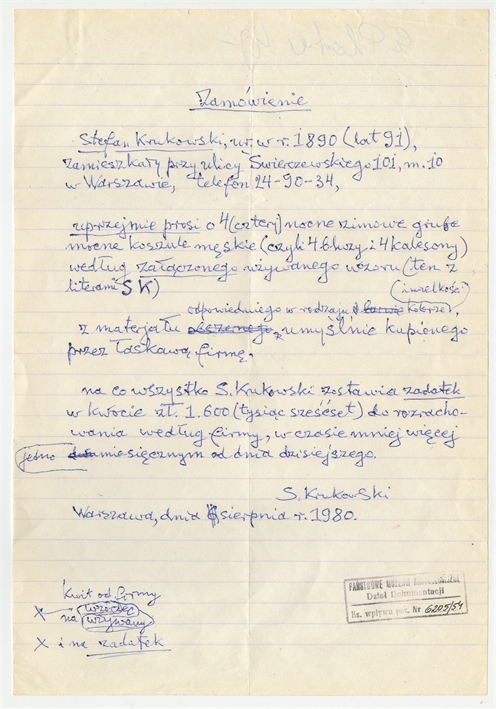 Zamówienie
Stefan Krukowski, ur. w r. 1890 (lat 91),
zamieszkały przy ulicy Świerczewskiego 101, m. 10
w Warszawie, telefon 24-90-34,
uprzejmie prosi o 4 (cztery) nocne zimowe grube
mocne koszule męskie (czyli 4 bluzy i 4 kalesony)
według załączonego używanego wzoru (ten z
literami SK) (i wielkości)
odpowiedniego w rodzaju i barwie kolorze,
z materjału obszernego, umyślnie kupionego
przez łaskawą firmę.
na co wszystko S. Krukowski zostawia zadatek
w kwocie zł. 1.600 (tysiąc sześćset) do rozracho-
wania według firmy, w czasie mniej więcej
jedno miesięcznym od dnia dzisiejszego.
S. Krukowski
Warszawa, dnia sierpnia r. 1980.
Kwit od firmy
X na wzorzec
używany
X i na zadatek
PAŃSTWOWE MUZEUM
Dział Dokumentacji
Ks. wpływu poz. Nr 6205/54